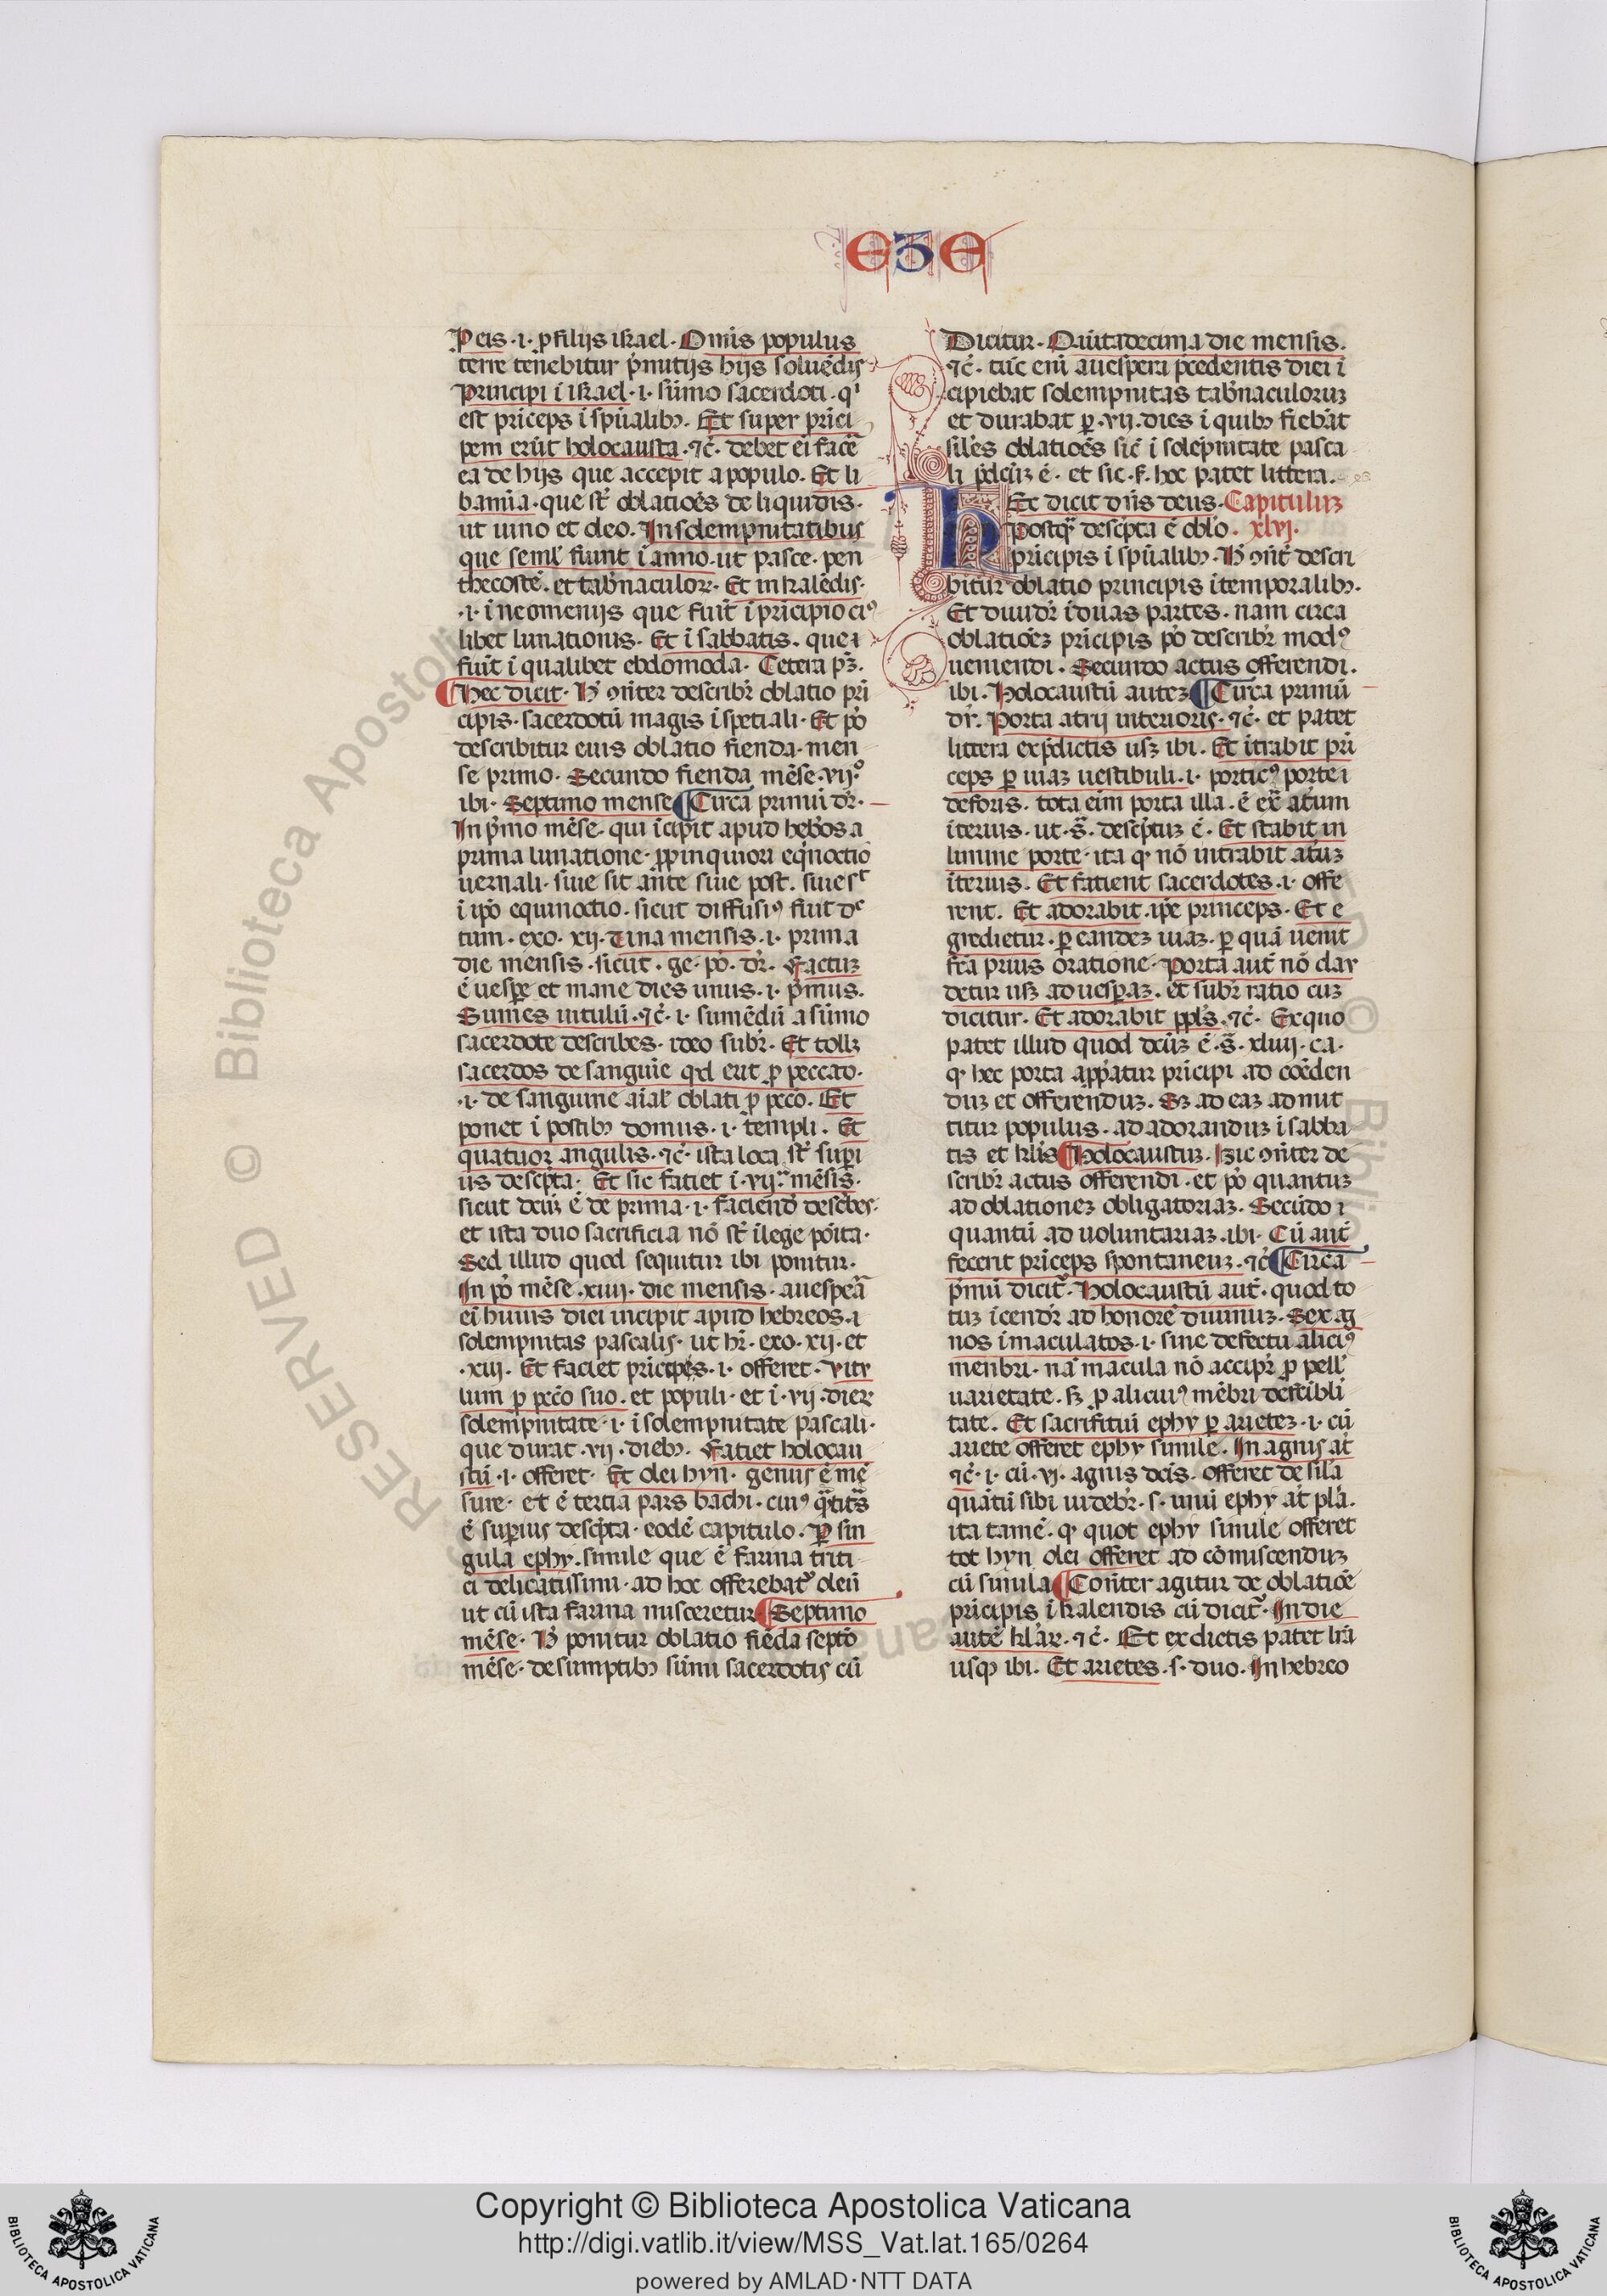 eze
P eis · i · ꝓ filijs israel · Omīs populus
terre tenebitur p̄mitijs hijs soluēdis
Principi ī israel · i · sūmo sacerdoti · qⁱ
est prīceps ī spūalibꝫ · Et super prīci
pem erūt holocausta · ⁊c̄ · debet eī facē
ea de hijs que accepit a populo · Et li
bamīa · que st̄ oblatiōēs de liquidis ·
ut uino et oleo · In solempnitatibus
que semł fiunt ī anno · ut pasce · pen
thecostē · et tab̄naculoꝝ · Et in kalēdis ·
· i · ī neomenijs que fiūt ī prīcipio cuiꝰ
libet lunationis · Et ī sabbatis · que
fiūt ī qualibet ebdomoda · Cetera pꝫ ·
¶ Hec dicit · H̄ ꝯn̄ter describr̄ oblatio prī
cipis · sacerdotū magis ī spetiali · Et pº
describitur eius oblatio fienda · men
se primo · Secundo fienda mēse · vijº
ibi · Septimo mense ¶ Circa primū dr̄ ·
In p̄mo mēse · qui īcipit apud heb̄os a
prima lunatione · ꝓpinquiori eq̄noctio
uernali · siue sit ante siue post · siue sᵗ
ī ip̄o equinoctio · sicut diffusiꝰ fuit dᶜ
tum · exo · xij · Una mensis · i · prima
die mensis · sicut · ge · pº · dr̄ · Factuꝫ
ē uesꝑe et mane dies unus · i · p̄mus ·
Sumes uitulū · ⁊c̄ · i · sumēdū a sūmo
sacerdote describes · ideo subr̄ · Et tollꝫ
sacerdos de sanguīe qd̵ erit ꝓ peccato ·
· i · de sanguine aīał oblati ꝓ pctō · Et
ponet ī postibꝫ domus · i · templi · Et
quatuor angulis · ⁊c̄ · ista loca st̄ supi
us desc̄pta · Et sic fatiet ī · vijᵃ mēsis ·
sicut dctū ē de prima · i · faciendꝰ desc̄bes ·
et ista duo sacrificia nō st̄ ī lege pōita ·
Sed illud quod sequitur ibi ponitur ·
In pº mēse · xiiij · die mensis · a uesp̄a
eī huius diei incipit apud hebreos ·
solempnitas pascalis · ut hr̄ · exo · xij · et
· xiij · Et faciet prīceps · i · offeret · vitu
lum ꝓ pctō suo · et populi · et ī · vij · dieꝝ
solempnitate · i · ī solempnitate pascali ·
que durat · vij · diebꝫ · Fatiet holocau
stū · i · offeret · Et olei hyn · genus ē mē
sure · et ē tercia pars bachi · cuiꝰ q̄titas
ē suꝑius desc̄pta · eodē capitulo · Per sin
gula ephy · simile que ē farina triti
ci delicatissimi · ad hoc offerebat̄ oleū
ut cū ista farina misceretur ¶ Septimo
mēse · H̄ ponitur oblatio fiēda septō
mēse · de sumptibꝫ sūmi sacerdotis cū
Dicitur · Quītadecima die mensis ·
⁊c̄ · tūc enī a uespera p̄cedentis diei ī
cipiebat solempnitas tab̄naculoruꝫ
et durabat ꝑ · vij · dies ī quibꝫ fiebāt
sił̄es oblatiōēs sic̄ ī solēpnitate pasca
li p̄dc̄tuꝫ ē · et sic · ẜ · hoc patet littera ·
Hec dicit dn̄s deus · Capituluꝫ
Postq̄ desc̄pta ē oblō · xlvj ·
prīcipis ī spūalibꝫ · H̄ ꝯn̄t̄ descri
bitur oblatio principis ī temporalibꝫ ·
Et diuidr̄ ī duas partes · nam circa
oblatiōeꝫ prīcipis pº describr̄ modꝰ
ueniendi · Secundo actus offerendi ·
ibi · Holocaustū auteꝫ ¶ Circa primū
dr̄ · Porta atrij interioris · ⁊c̄ · et patet
littera ex p̄dictis usꝫ ibi · Et ītrabit prī
ceps ꝑ uiaꝫ uestibuli · i · porticꝰ porte
deforis · tota eīm porta illa · ē ex̄ at̄um
īterius · ut · s̄ · desc̄ptuꝫ ē · Et stabit in
limine porte · ita q̵ nō intrabit at̄uꝫ
īterius · Et fatient sacerdotes · i · offe
rent · Et adorabit · ip̄e princeps · Et e
gredietur · ꝑ eandeꝫ uiaꝫ · ꝑ quā uenit
fc̄a prius oratione · Porta aut̄ nō clau
detur usꝫ ad uesꝑaꝫ · et subr̄ ratio cuꝫ
dicitur · Et adorabit ppl̄s · ⁊c̄ · Ex quo
patet illud quod dctūꝫ ē · s̄ · xliiij · ca ·
q̵ hec porta app̄atur prīcipi ad cōēden
duꝫ et offerenduꝫ · Sꝫ ad eaꝫ admit
titur populus · ad adoranduꝫ ī sabba
tis et kl̄is ¶ Holocaustuꝫ · Hic ꝯn̄ter de
scribr̄ actus offerendi · et pº quantuꝫ
ad oblationeꝫ obligatoriaꝫ · Secūdo
quantū ad uoluntariaꝫ · ibi · Cū aut̄
fecerit prīceps spontaneuꝫ · ⁊c̄ ¶ Circa
p̄mū dicit̄ · Holocaustū aut̄ · quod to
tuꝫ īcendr̄ ad honorē diuinuꝫ · Sex ag
nos īmaculatos · i · sine defectu alicuiꝰ
menbri · nā macula nō accipr̄ ꝓ pell̄
uarietate · sꝫ ꝓ alicuiꝰ mēbri defcībili
tate · Et sacrifitiū ephy ꝑ arieteꝫ · i · cū
ariete offeret ephy simile · In agnis at̄
⁊c̄ · i · cū · vj · agnis dctīs · offeret de sil̄a
quātū sibi uidebr̄ · s · unū ephy at̄ pl̄a ·
ita tamē · q̵ quot ephy simile offeret
tot hyn olei offeret ad cōmiscenduꝫ
cū simila ¶ Con̄ter agitur de oblatiōē
prīcipis ī kalendis cū dicit̄ · In die
autē kl̄aꝝ · ⁊c̄ · Et ex dictis patet lr̄a
usqꝫ ibi · Et arietes · s · duo · In hebreo
Copyright © Biblioteca Apostolica Vaticana
http://digi.vatlib.it/view/MSS_Vat.lat.165/0264
powered by AMLAD·NTT DATA